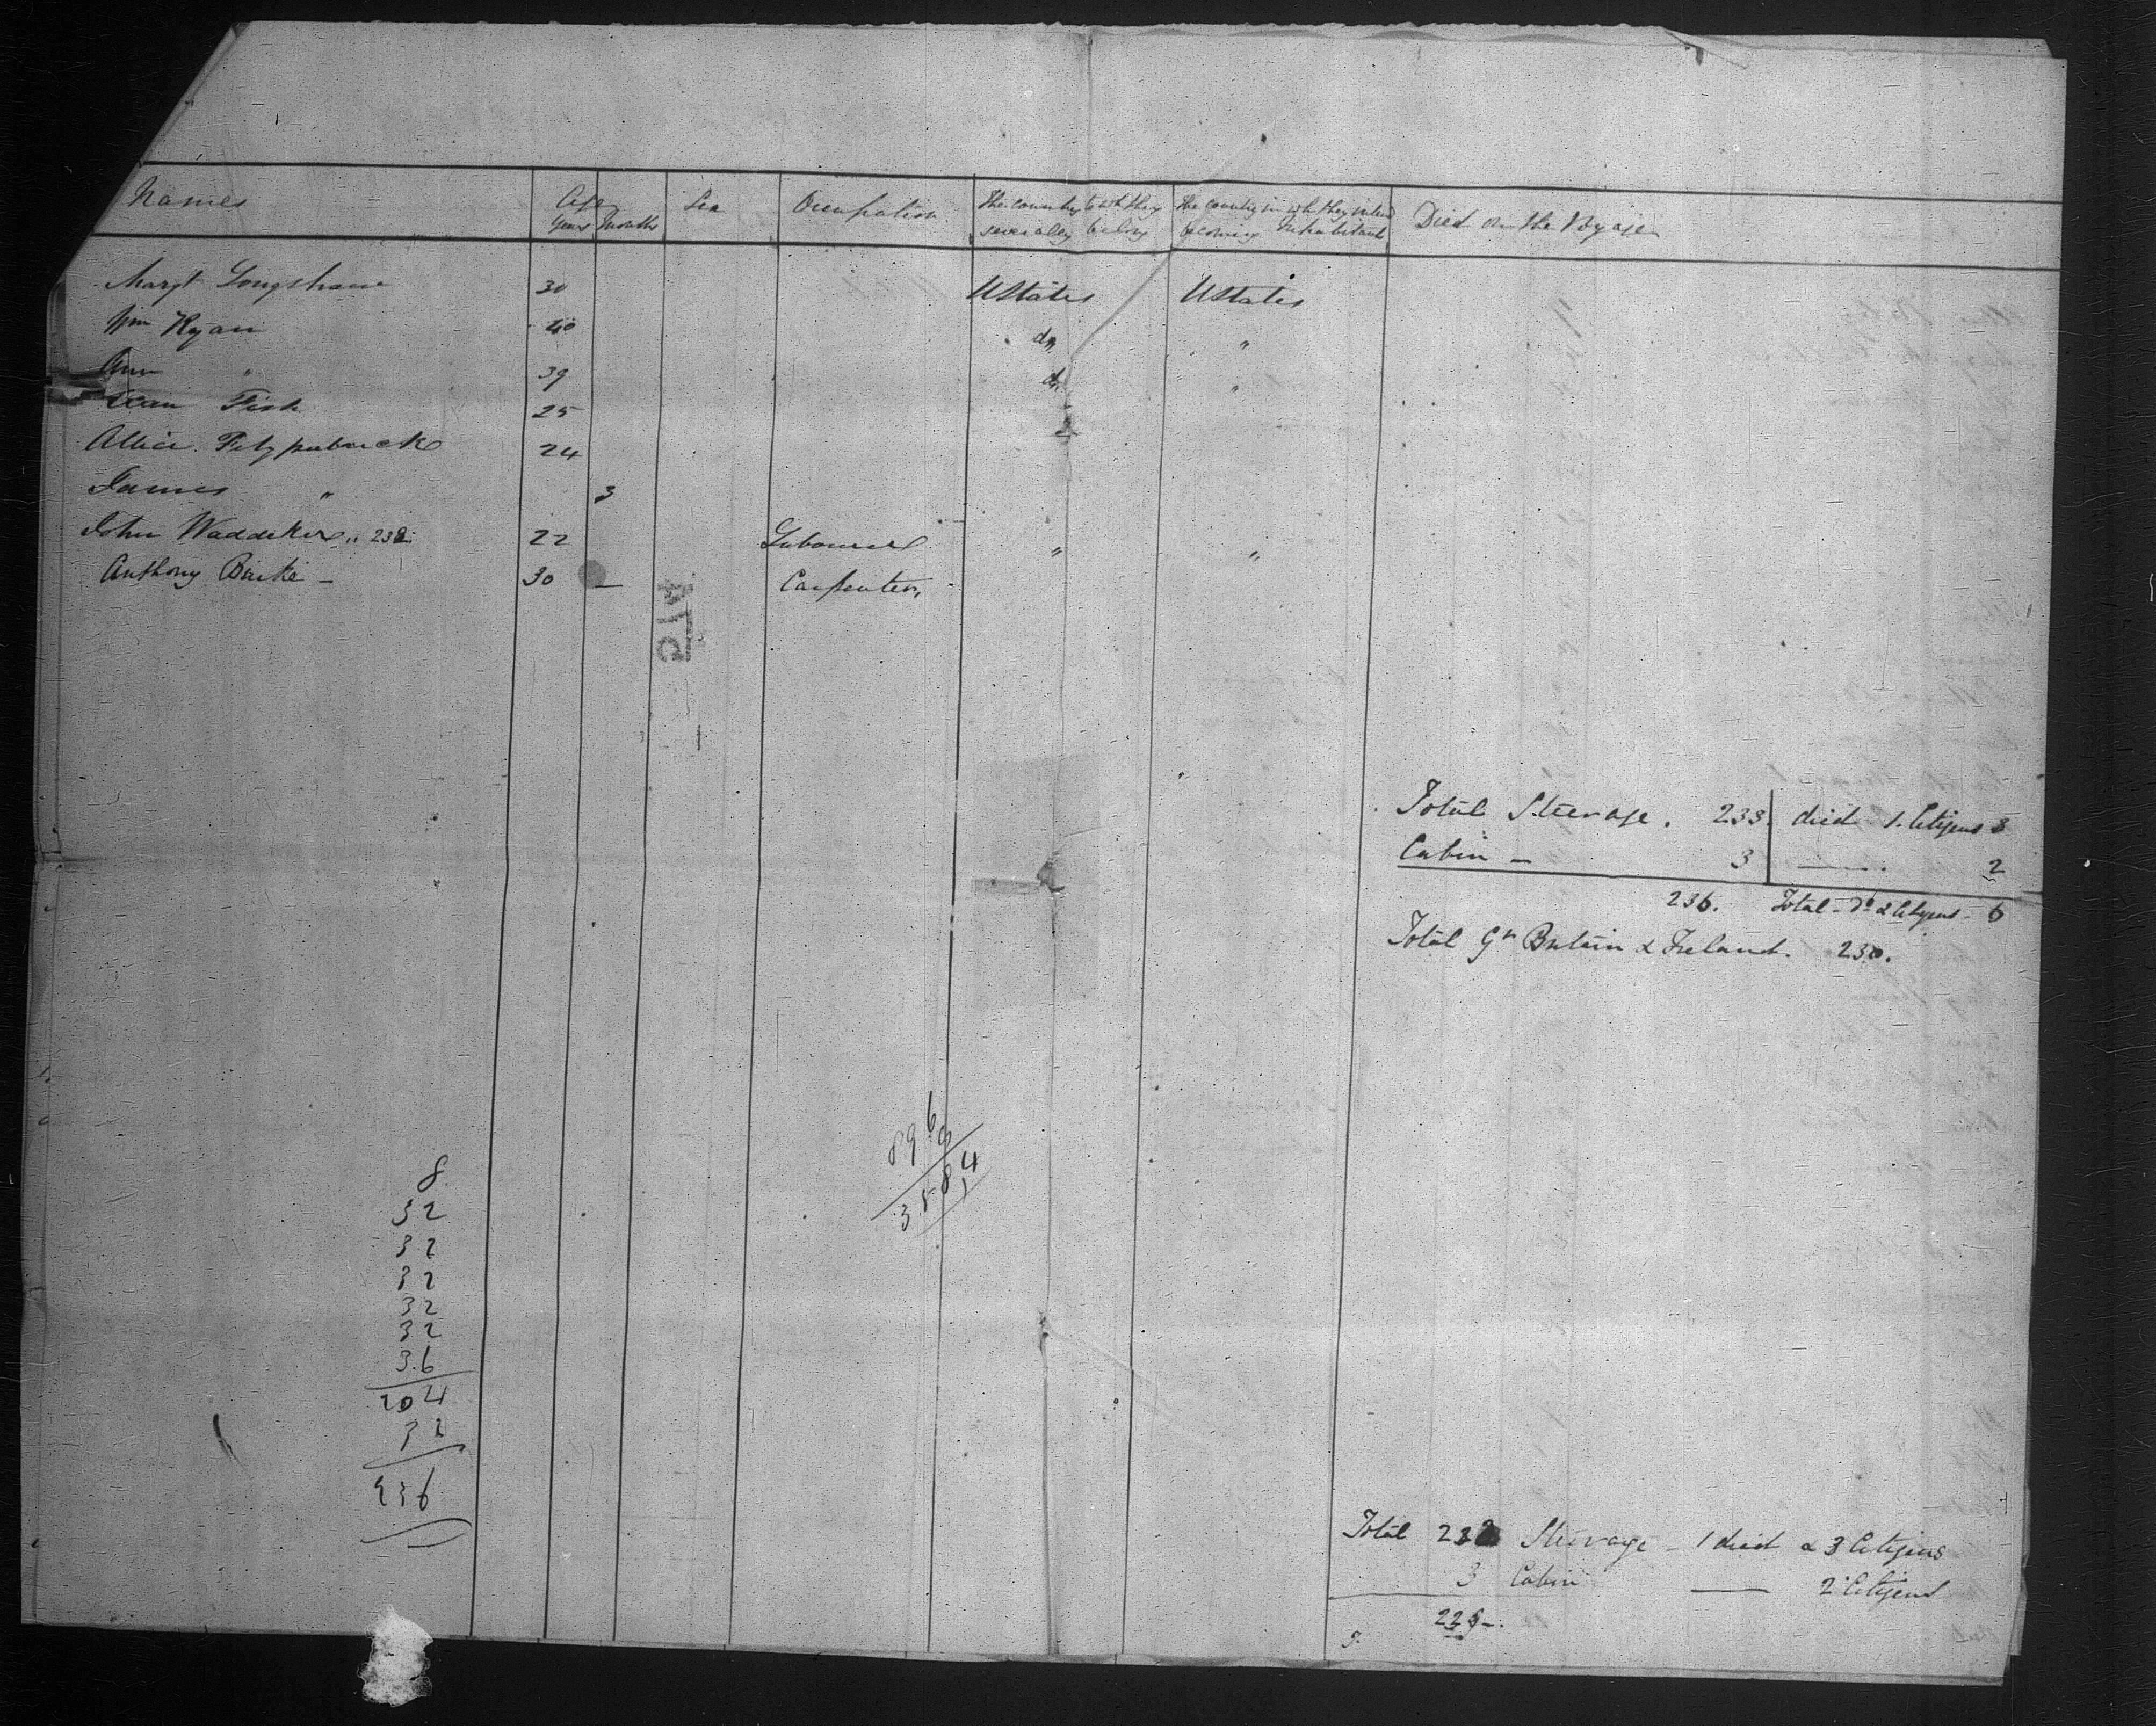 Names Age Years Months Sex Occupation The country to wh they severally belong The country in wh they intend becoming Inhabitants Died on the Voyage
Margt Longshaw 30 UStates UStates
Wm Ryan 40 do "
Ann " 39 do "
Fish 25
Allice Fitzpatrick 24
James " 3
John 232 22 Labourer " "
Anthony Burke — 30 — Carpenter
Total Steerage. 233 died 1. Citizens 3
Cabin — 3 —— 2
236. Total - Do & Citizens - 6
Total Gt Britain & Ireland. 230.
896
3584
8
32
32
32
32
32
36
204
32
236
Total Steerage — 1 died & 3 Citizens
3 Cabin —— 2 Citizens